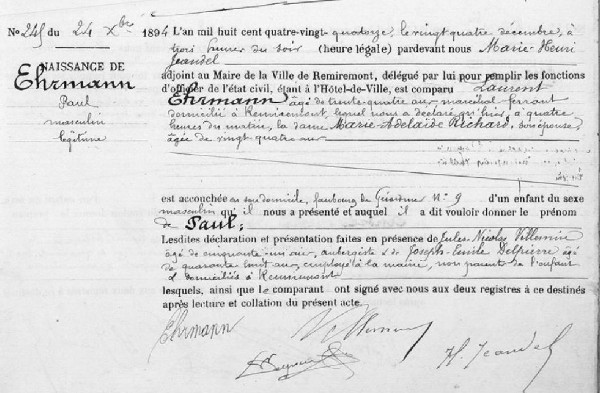 No 245 du 24 Xbre 1894
NAISSANCE DE
Ehrmann
Paul
masculin
légitime
L'an mil huit cent quatre-vingt-quatorze, le vingt quatre décembre, à
trois heures du soir (heure légale) pardevant nous Marie-Henri
Jeandel
adjoint au Maire de la Ville de Remiremont, délégué par lui pour remplir les fonctions
d'officier de l'état civil, étant à l'Hôtel-de-Ville, est comparu Laurent
Ehrmann âgé de trente-quatre ans maréchal ferrant
domicilié à Remiremont, lequel nous a déclaré qu'hier, à quatre
heures du matin, la dame Marie Adélaïde Richard, son épouse,
âgée de vingt quatre ans
est accouchée au domicile, faubourg No 9 d'un enfant du sexe
masculin qu'il nous a présenté et auquel il a dit vouloir donner le prénom
de Paul;
Lesdites déclaration et présentation faites en présence de Jules Nicolas Villemin
âgé de cinquante-un ans, aubergiste & de Joseph Emile Delpierre âgé
de quarante huit ans, employé à la mairie, non parents de l'enfant
& domiciliés à Remiremont
lesquels, ainsi que le comparant ont signé avec nous aux deux registres à ce destinés
après lecture et collation du présent acte.
Ehrmann Villemin
H. Jeandel